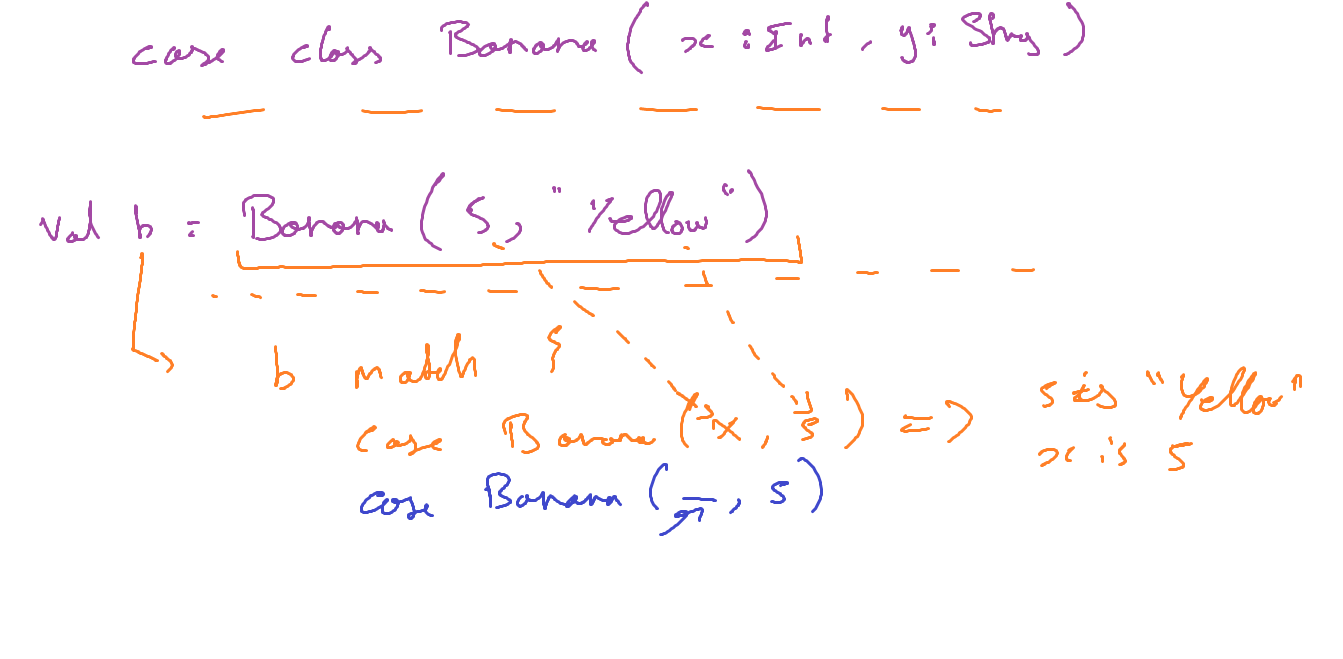 case class Banana ( x : Int , y : String )
val b = Banana ( 5 , "Yellow" )
b match {
case Banana ( x , s ) =>
s is "Yellow"
x is 5
case Banana ( _ , s )